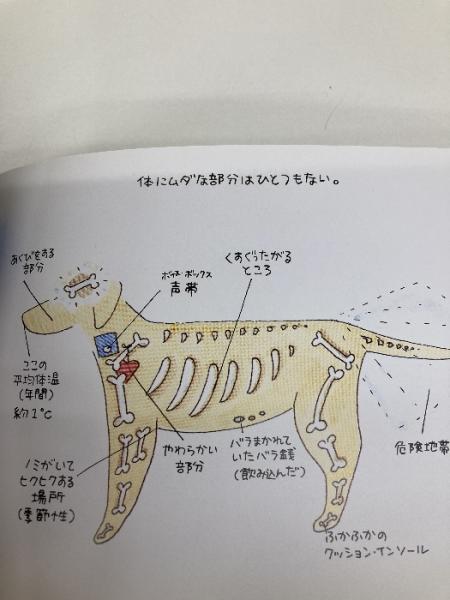 体にムダな部分はひとつもない。
あくびをする
部分
ボイス・ボックス
声帯
くすぐったがる
ところ
ここの
平均体温
(年間)
約1℃
ノミがいて
ヒクヒクする
場所
(季節性)
やわらかい
部分
バラまかれて
いたバラ銭
(飲み込んだ)
危険地帯
ふかふかの
クッション・インソール